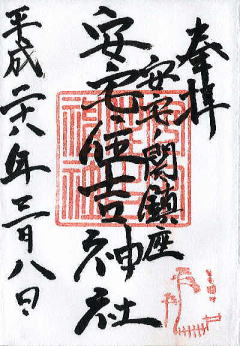 奉拝
安宅ノ関鎮座
安宅住吉神社
平成二十八年三月八日